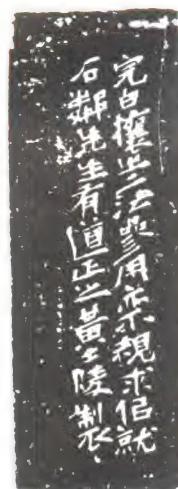 完白攘之之法參用京禾覞求侶就
石鄰先生有道正之黃士陵製